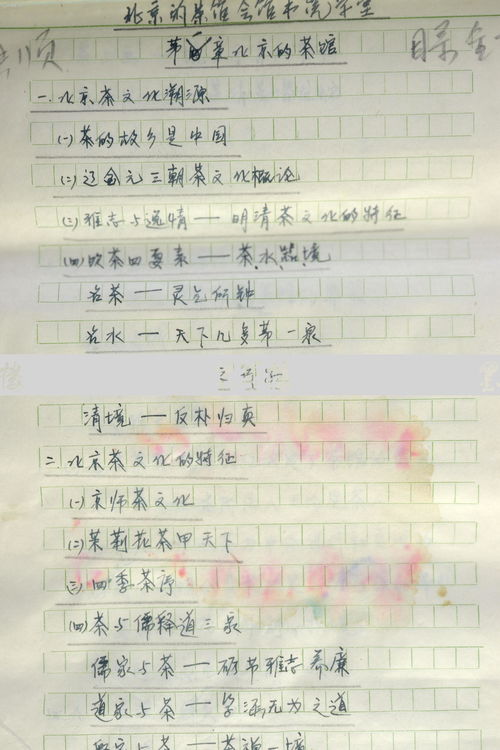 北京的茶馆会馆书院学堂
第 章北京的茶馆
一.北京茶文化溯源
(一)茶的故乡是中国
(二)辽金元三朝茶文化概论
(三)雅志与逸情——明清茶文化的特征
(四)饮茶四要素——茶、水、器、境
名茶——灵气所钟
名水——天下几多第一泉
清境——反朴归真
二.北京茶文化的特征
(一)京师茶文化
(二)茉莉花茶甲天下
(三)四季茶序
(四)茶与儒释道三家
儒家与茶——砺节雅志养廉
道家与茶——学涵无为之道
茶禅一境